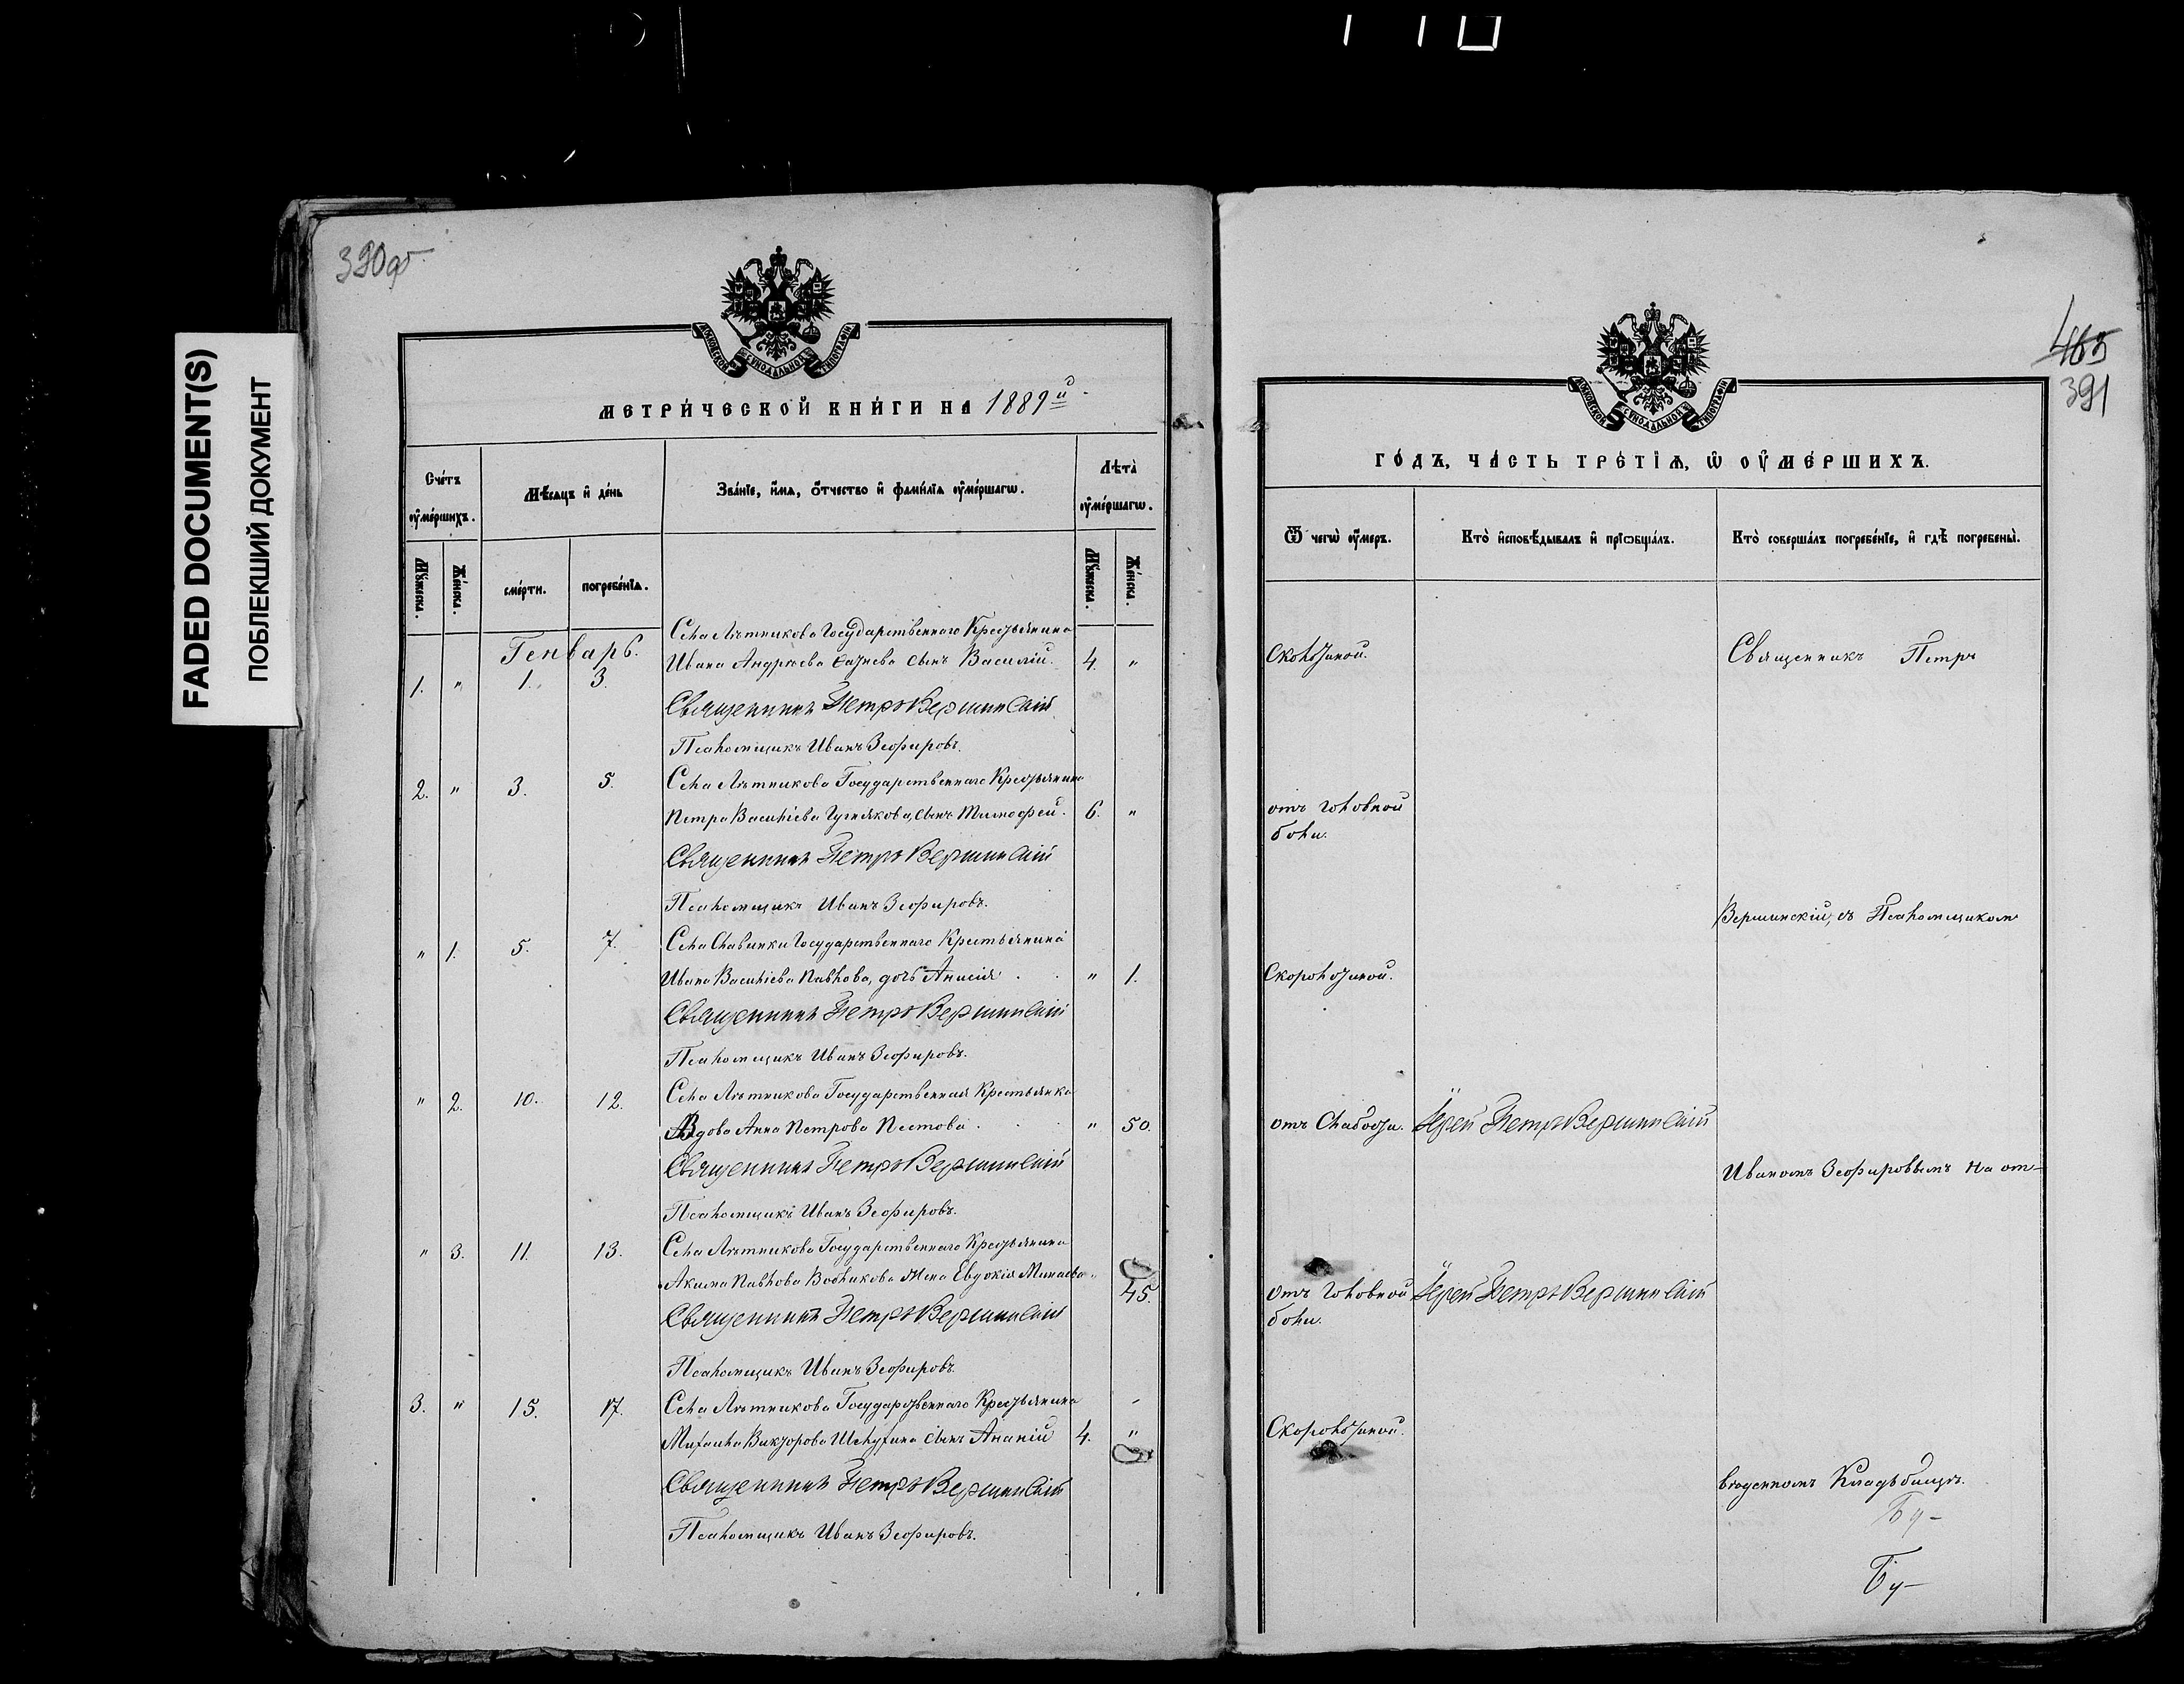 FADED DOCUMENT(S)
ПОБЛЕКШИЙ ДОКУМЕНТ
390об
МОСКОВСКОЙ СѴНОДАЛЬНОЙ ТИПОГРАФІИ
МЕТРИ́ЧЕСКОЙ КНИ́ГИ НА 1889й
Сче́тъ оу҆ме́ршихъ.
Мѣ́сяцъ и҆ де́нь
Зва́нїе, и҆́мѧ, ѻ҆́тчество и҆ фами́лїѧ оу҆ме́ршагѡ.
Лѣта̀ оу҆ме́ршагѡ.
Мꙋ́жеска.
Же́нска.
сме́рти.
погребе́нїѧ.
Мꙋ́жеска.
Же́нска.
Генварь.
Села Лѣтникова Государственнаго Крестьянина
1. " 1. 3. Ивана Андреева сынъ Василій. 4. "
Священникъ Петръ Вершинскій
Псаломщикъ Иванъ Зефировъ.
2. " 3. 5. Села Лѣтникова Государственнаго Крестьянина
Петра Васильева сынъ Тимофей. 6. "
Священникъ Петръ Вершинскій
Псаломщикъ Иванъ Зефировъ.
" 1. 5. 7. Села Славинки Государственнаго Крестьянина
Ивана Васильева Павлова, дочь Анисія " 1.
Священникъ Петръ Вершинскій
Псаломщикъ Иванъ Зефировъ.
" 2. 10. 12. Села Лѣтникова Государственная Крестьянка
Вдова Анна Петрова Пестова " 50.
Священникъ Петръ Вершинскій
Псаломщикъ Иванъ Зефировъ.
" 3. 11. 13. Села Лѣтникова Государственнаго Крестьянина
Акима Павлова Вобликова жена Евдокія Минаева " 45.
Священникъ Петръ Вершинскій
Псаломщикъ Иванъ Зефировъ.
3. " 15. 17. Села Лѣтникова Государственнаго Крестьянина
Михаила Викторова Шелухина сынъ Ананій 4. "
Священникъ Петръ Вершинскій
Псаломщикъ Иванъ Зефировъ.
465
391
МОСКОВСКОЙ СѴНОДАЛЬНОЙ ТИПОГРАФІИ
ГО́ДЪ, ЧА́СТЬ ТРЕ́ТЇѦ, Ѡ҆ ОУ҆МЕ́РШИХЪ.
Ѿ чегѡ̀ оу҆́меръ.
Кто̀ и҆сповѣ́дывалъ и҆ прїѡбща́лъ.
Кто̀ соверша́лъ погребе́нїе, и҆ гдѣ̀ погребены̀.
Священникъ Петръ
отъ головной
боли.
Вершинскій, съ Псаломщикомъ
Скоролозиной.
отъ слабости. Іерей Петръ Вершинскій
Иваномъ Зефировымъ на от-
отъ головной Іерей Петръ Вершинскій
боли.
Скоролозиной.
веденномъ Кладбищѣ.
Бу-
Бу-